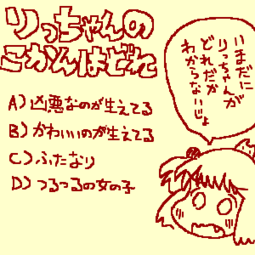 りっちゃんの
こかんはどれ
A)凶悪なのが生えてる
B)かわいいのが生えてる
C)ふたなり
D)つるつるの女の子
いまだに
りっちゃんが
どれだか
わからないじょ